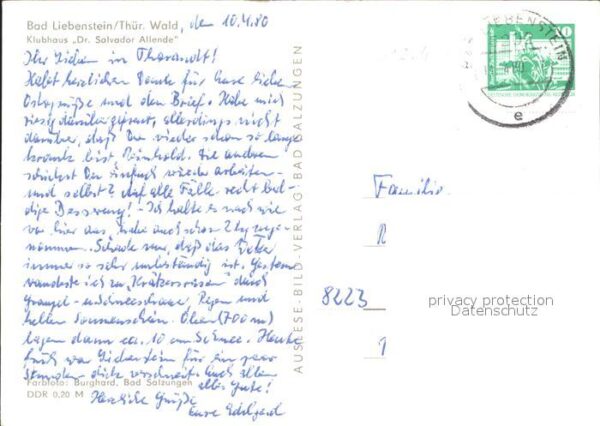 Bad Liebenstein/Thür. Wald, den 10.4.80
Klubhaus „Dr. Salvador Allende"
Ihr Lieben in Tharandt!
Habt herzlichen Dank für Eure lieben
Ostergrüße und den Brief. Habe mich
riesig darüber gefreut, allerdings nicht
darüber, daß Du wieder schon so lange
krank bist Reinhold. Die anderen
schickst Du einfach wieder arbeiten
und selbst? Auf alle Fälle recht bal-
dige Besserung! - Ich halte es nach wie
vor hier aus, habe auch schon 2 kg zuge-
nommen. Schade nur, daß das Wetter
immer so sehr unbeständig ist. Gestern
wanderte ich zu durch
Graupel- u. Schneeschauer, Regen und
hellen Sonnenschein. Oben (700 m)
lagen dann ca. 10 cm Schnee. Heute
früh war Liebenstein für ein paar
Stunden dick verschneit. Euch allen
alles Gute!
Herzliche Grüße
Eure Edelgard
Farbfoto: Burghard, Bad Salzungen
DDR 0,20 M
AUSLESE-BILD-VERLAG · BAD SALZUNGEN
LIEBENSTEIN
e
10
Familie
R
8223
1
privacy protection
Datenschutz